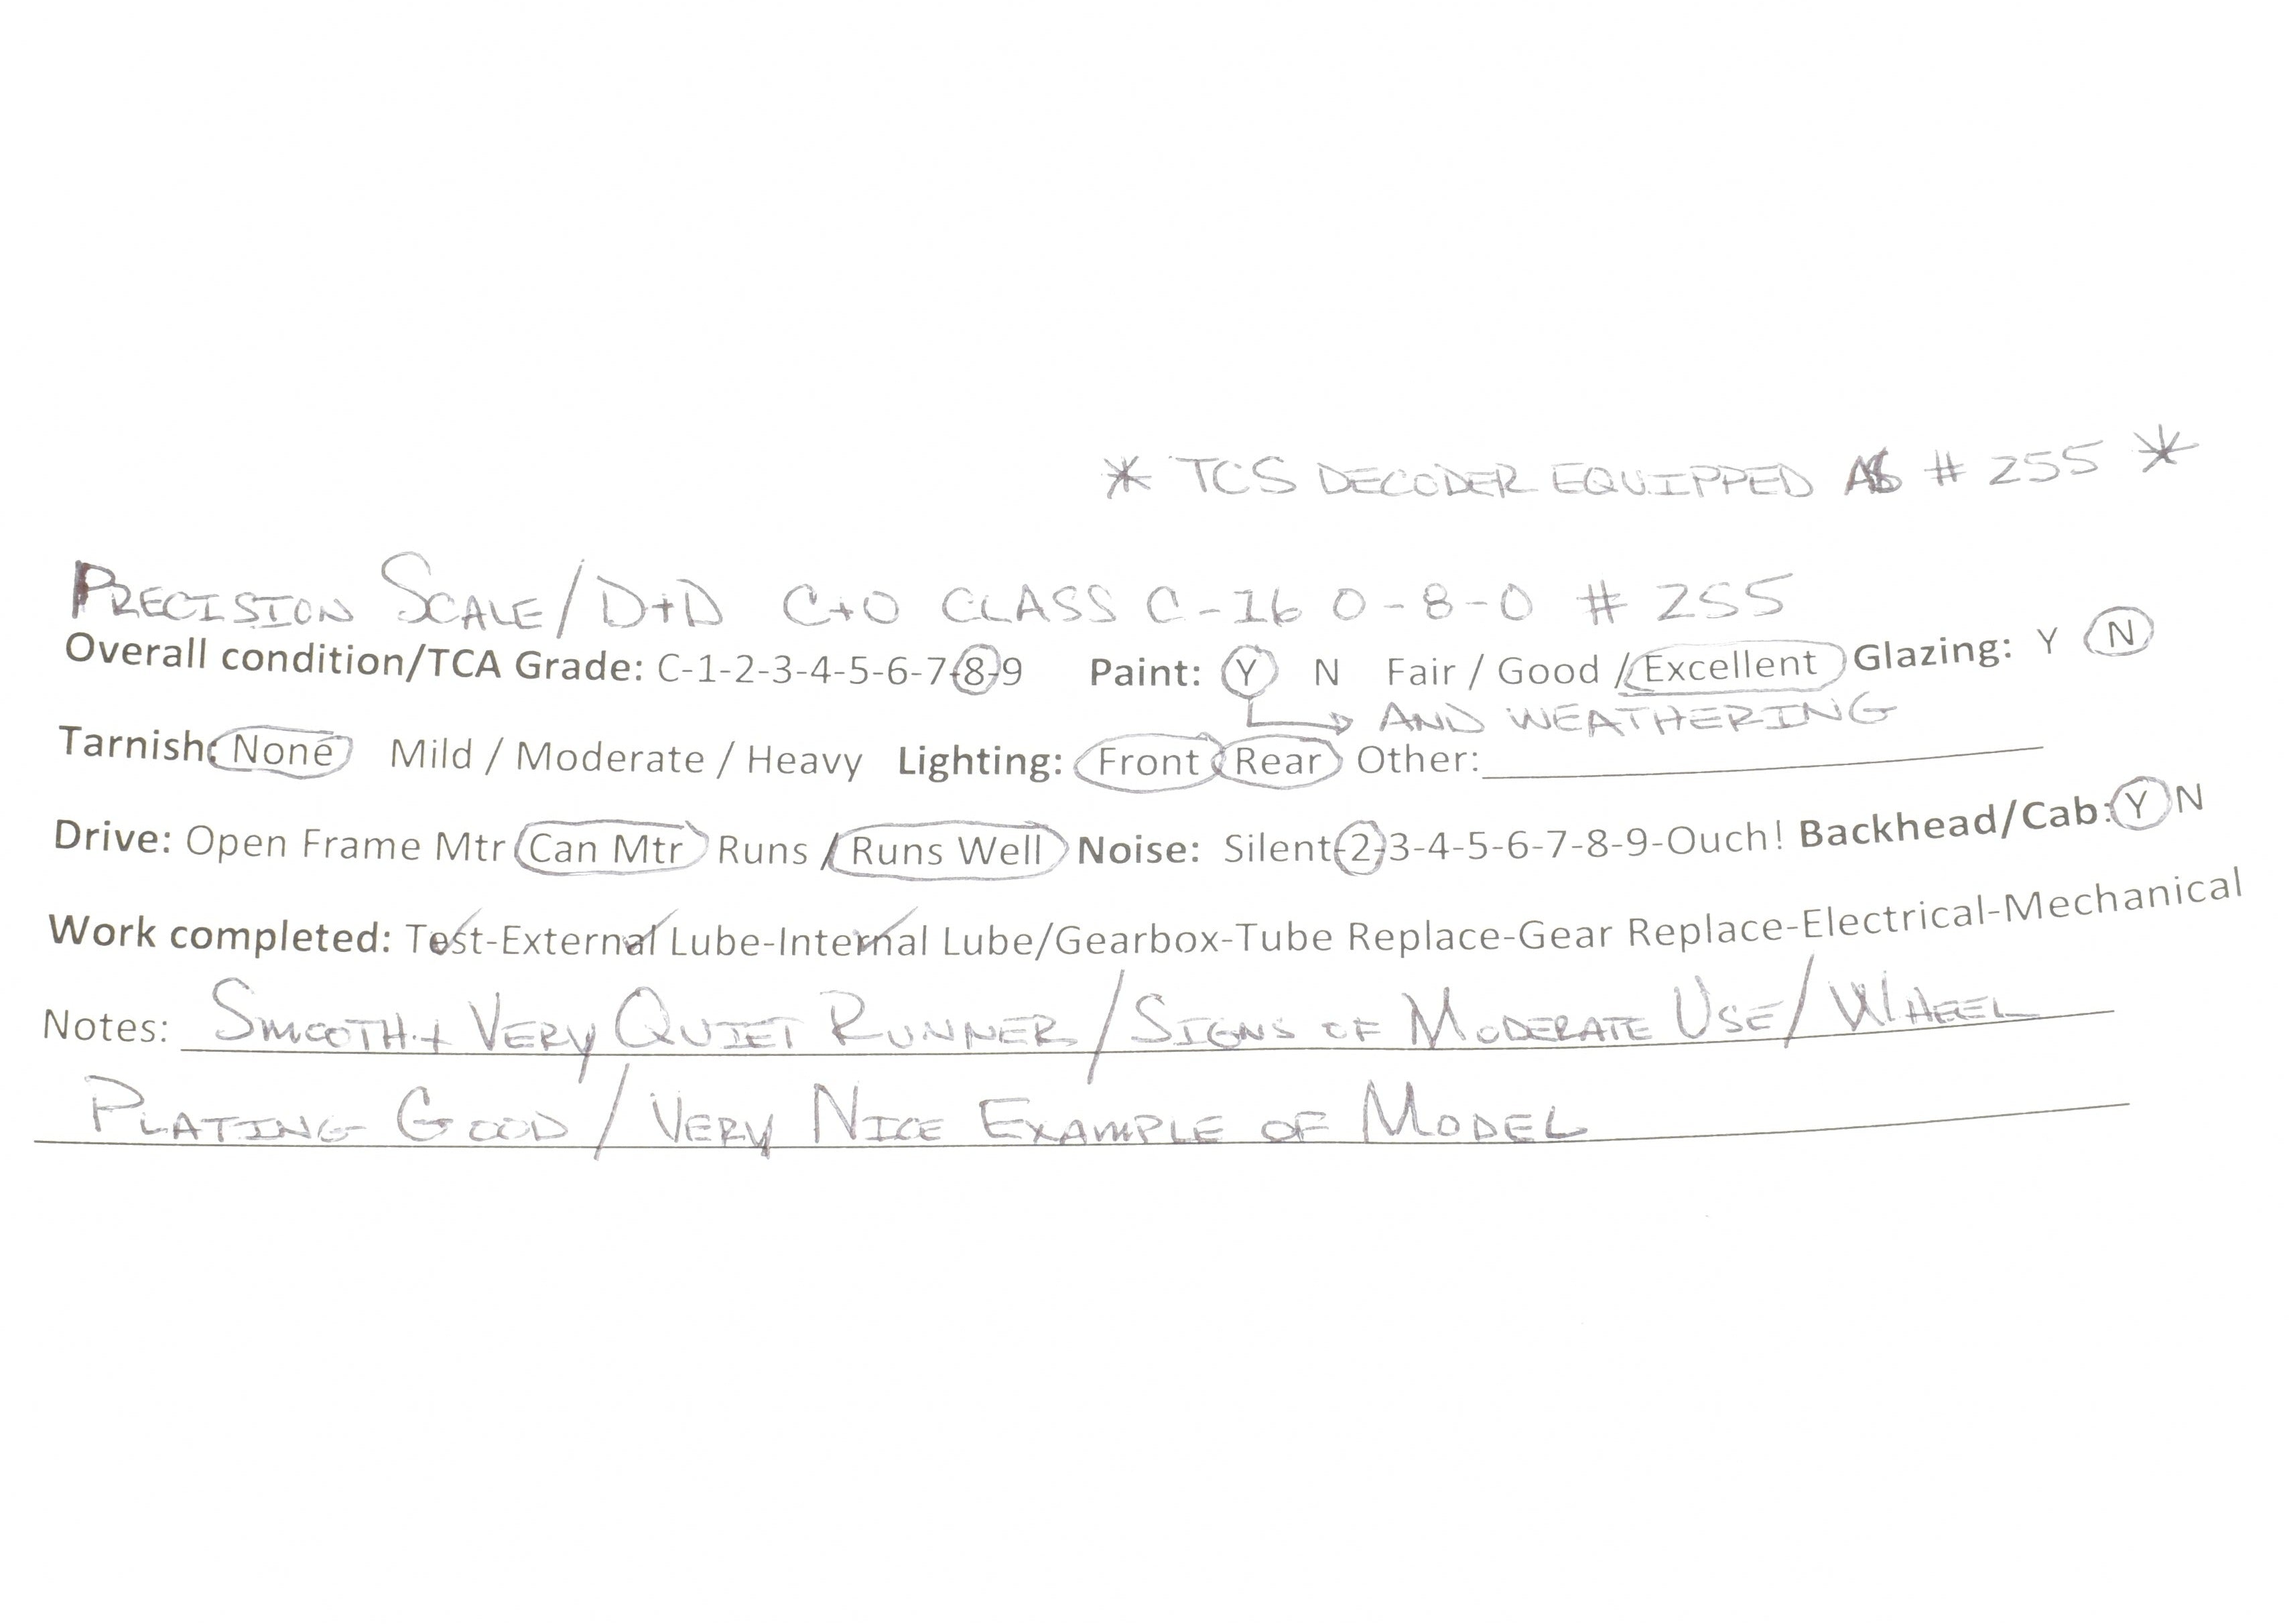 * TCS DECODER EQUIPPED AS # 255 *
PRECISION SCALE/D+D C+O CLASS C-16 0-8-0 # 255
Overall condition/TCA Grade: C-1-2-3-4-5-6-7-8-9 Paint: Y N Fair / Good / Excellent Glazing: Y N
AND WEATHERING
Tarnish: None Mild / Moderate / Heavy Lighting: Front / Rear Other:
Drive: Open Frame Mtr Can Mtr Runs / Runs Well Noise: Silent-2-3-4-5-6-7-8-9-Ouch! Backhead/Cab: Y N
Work completed: Test-External Lube-Internal Lube/Gearbox-Tube Replace-Gear Replace-Electrical-Mechanical
Notes: SMOOTH + VERY QUIET RUNNER/SIGNS OF MODERATE USE/WHEEL
PLATING GOOD/VERY NICE EXAMPLE OF MODEL